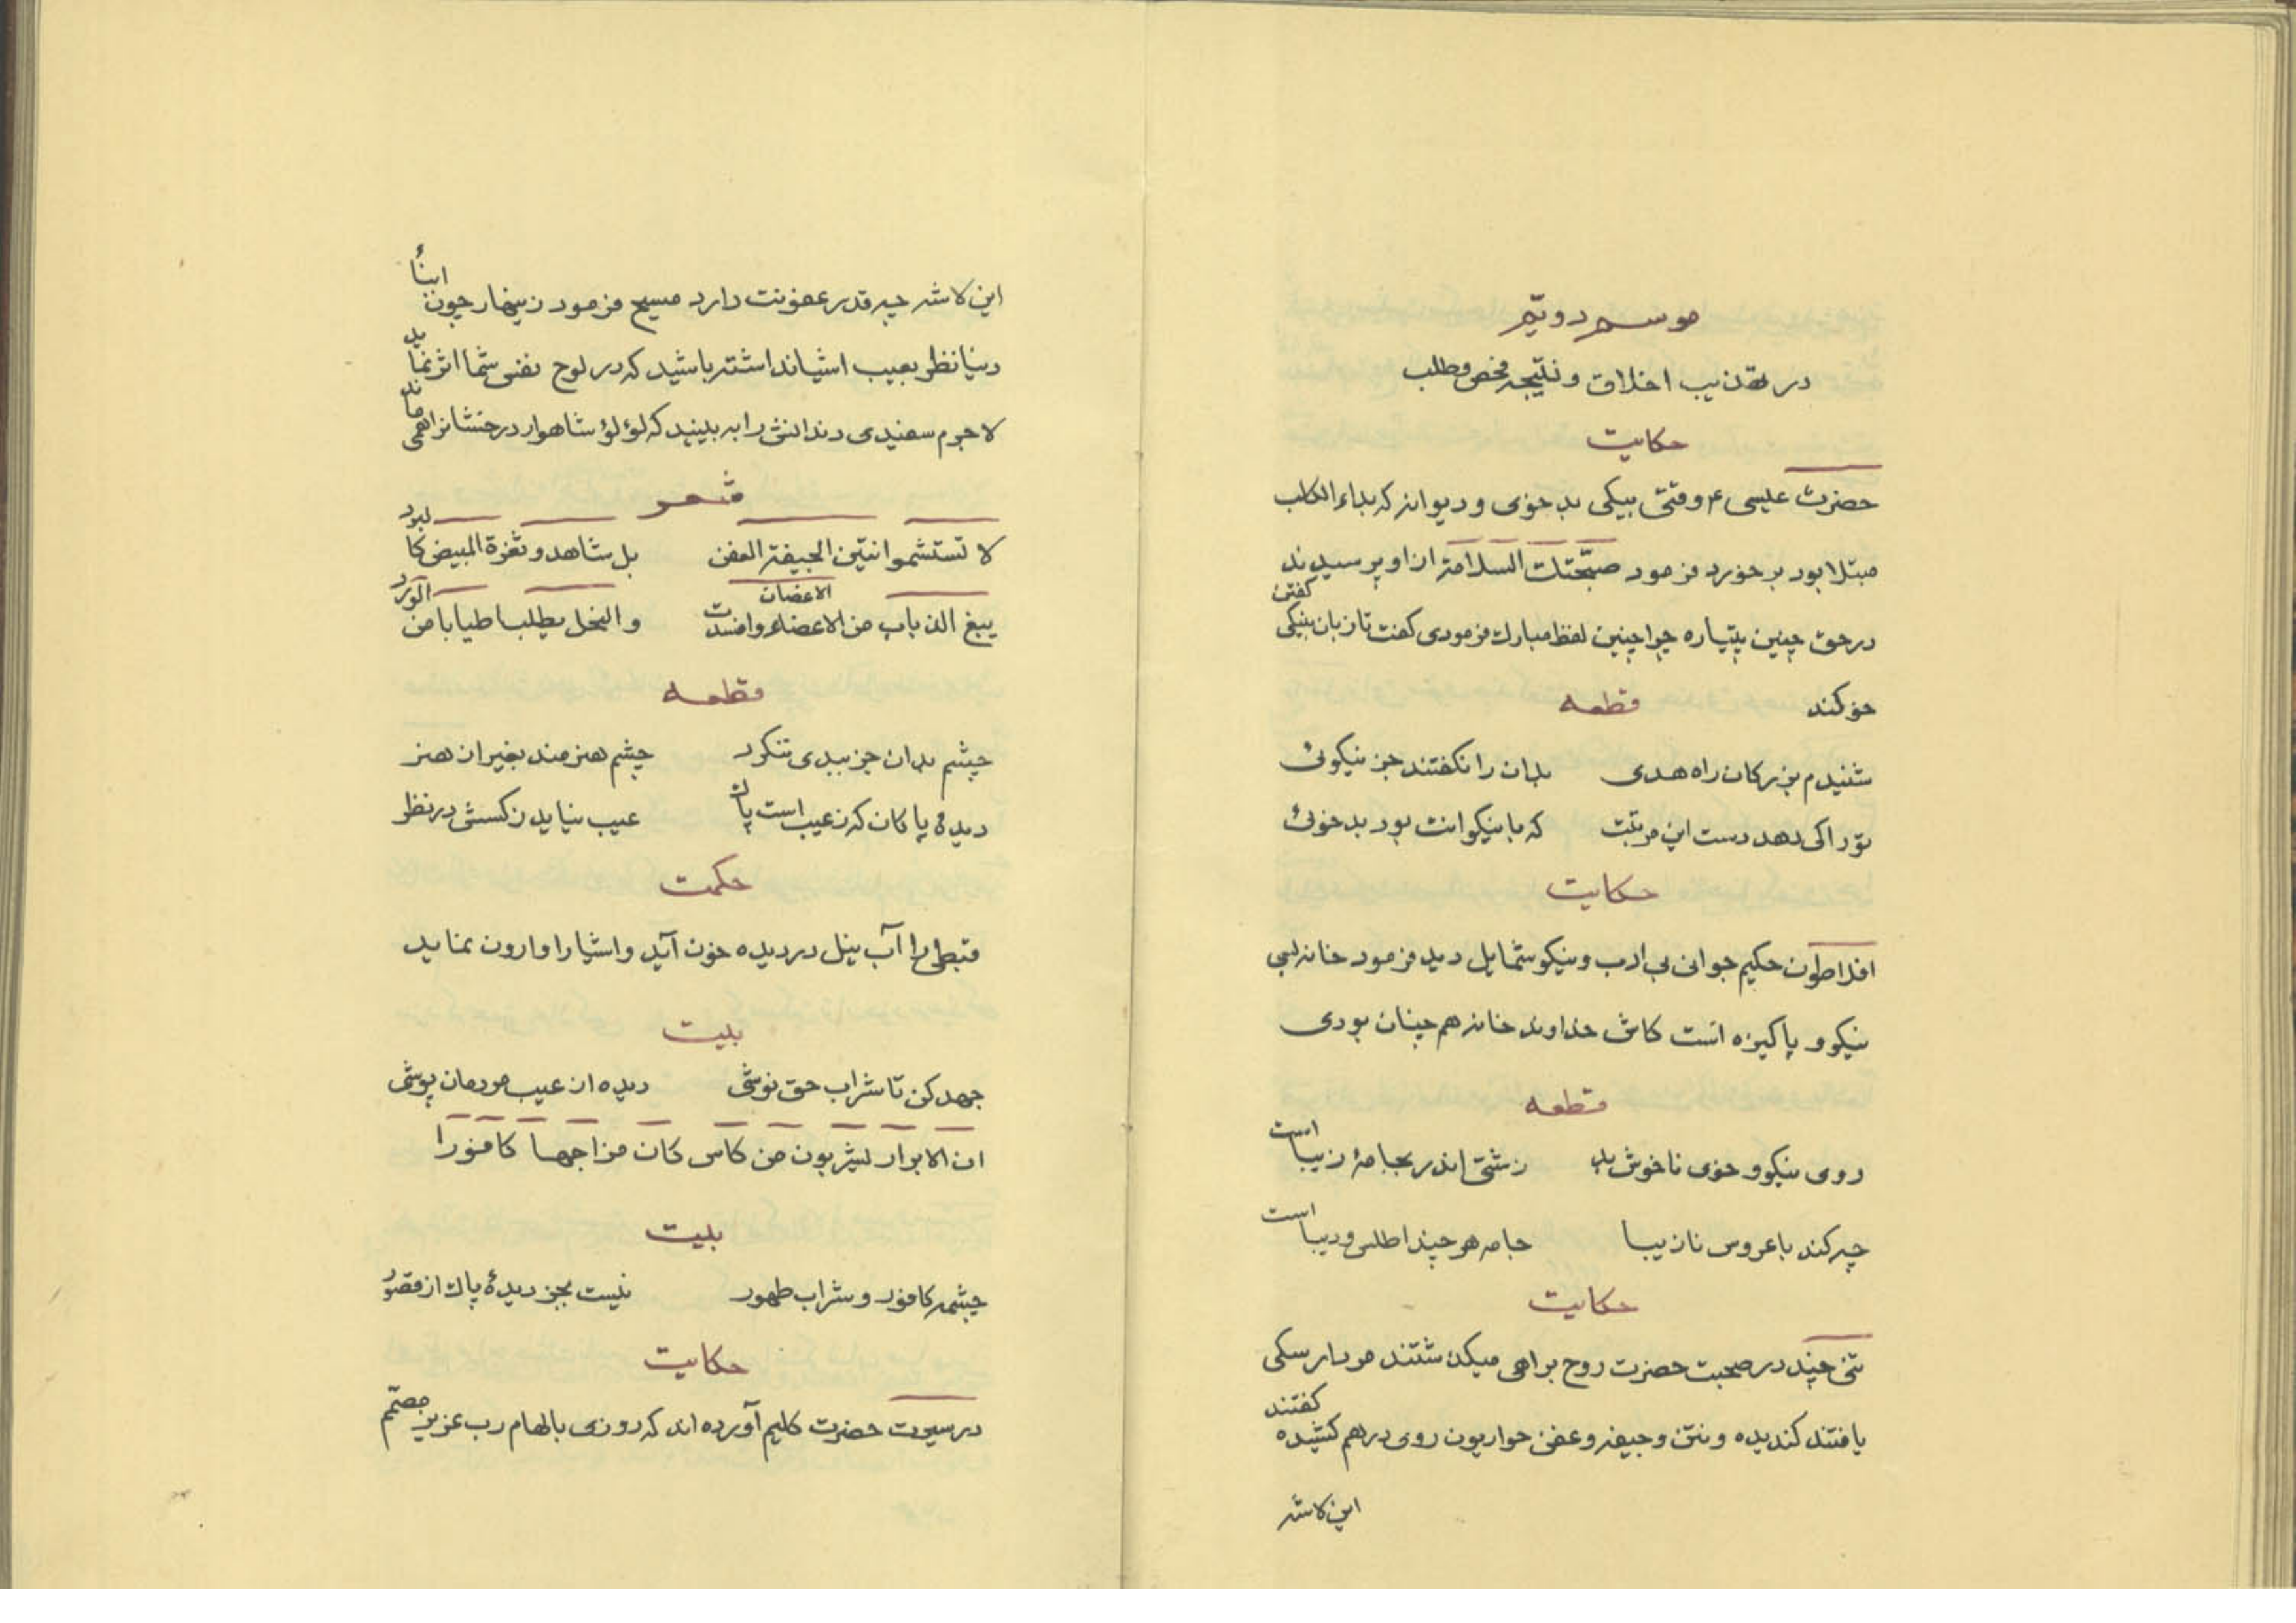 موسم دویّم
در تهذیب اخلاق و نتیجه فحص و طلب
حکایت
حضرت عیسی ع وقتی بیکی بد خوی و دیوانه که بداء الکلب
مبتلا بود بر خورد فرمود صبّحتک السلامة از او پرسیدند
در حق چنین پتیاره چرا چنین لفظ مبارک فرمودی کفت تا زبان بنیکی کفتن
خو کند
قطعه
شنیدم بزرکان راه هدی بدان را نکفتند جز نیکوئی
تو را کی دهد دست این مرتبت که با نیکوانت بود بد خوئی
حکایت
افلاطون حکیم جوانی بی ادب و نیکو شمایل دید فرمود خانه بسی
نیکو و پاکیزه است کاش خداوند خانه هم چنان بودی
قطعه
روی نیکو و خوی ناخوش بد زشتی اندر بجامهٔ زیبا است
چه کند با عروس نازیبا جامه هر چند اطلس و دیبا است
حکایت
تنی چند در صحبت حضرت روح براهی میکذشتند مردار سکی
یافتند کندیده و نتن و جیفه و عفن حواریون روی درهم کشیده کفتند
این لاشه
این لاشه چه قدر عفونت دارد مسیح فرمود زینهار چون ابناء
دنیا نظر بعیب اشیا نداشته باشید که در لوح نفس شما اثر نماید
لاجرم سفیدی دندانش را به بینید که لؤلؤ شاهوار درخشانرا همی ماند
شعر
لا تستشموا نتین الجیفة العفن بل شاهدو ثغزة المبیض کالبرد
یبغ الذباب من الاعضاء وافسدت الاعضان والنحل یطلب اطیابا من الورد
قطعه
چشم بدان جز ببدی ننکرد چشم هنرمند بغیر از هنر
دیدهٔ پاکان که ز عیب است پاک عیب نیاید ز کسش در نظر
حکمت
قبطی را آب نیل در دیده خون آید و اشیا را وارون نماید
بیت
جهد کن تا شراب حق نوشی دیده از عیب مردمان پوشی
ان الابرار لیشربون من کاس کان مزاجها کافورا
بیت
چشمه کافور و شراب طهور نیست بجز دیدهٔ پاک از قصور
حکایت
در سیرت حضرت کلیم آورده اند که روزی بالهام رب عزیز مصمّم